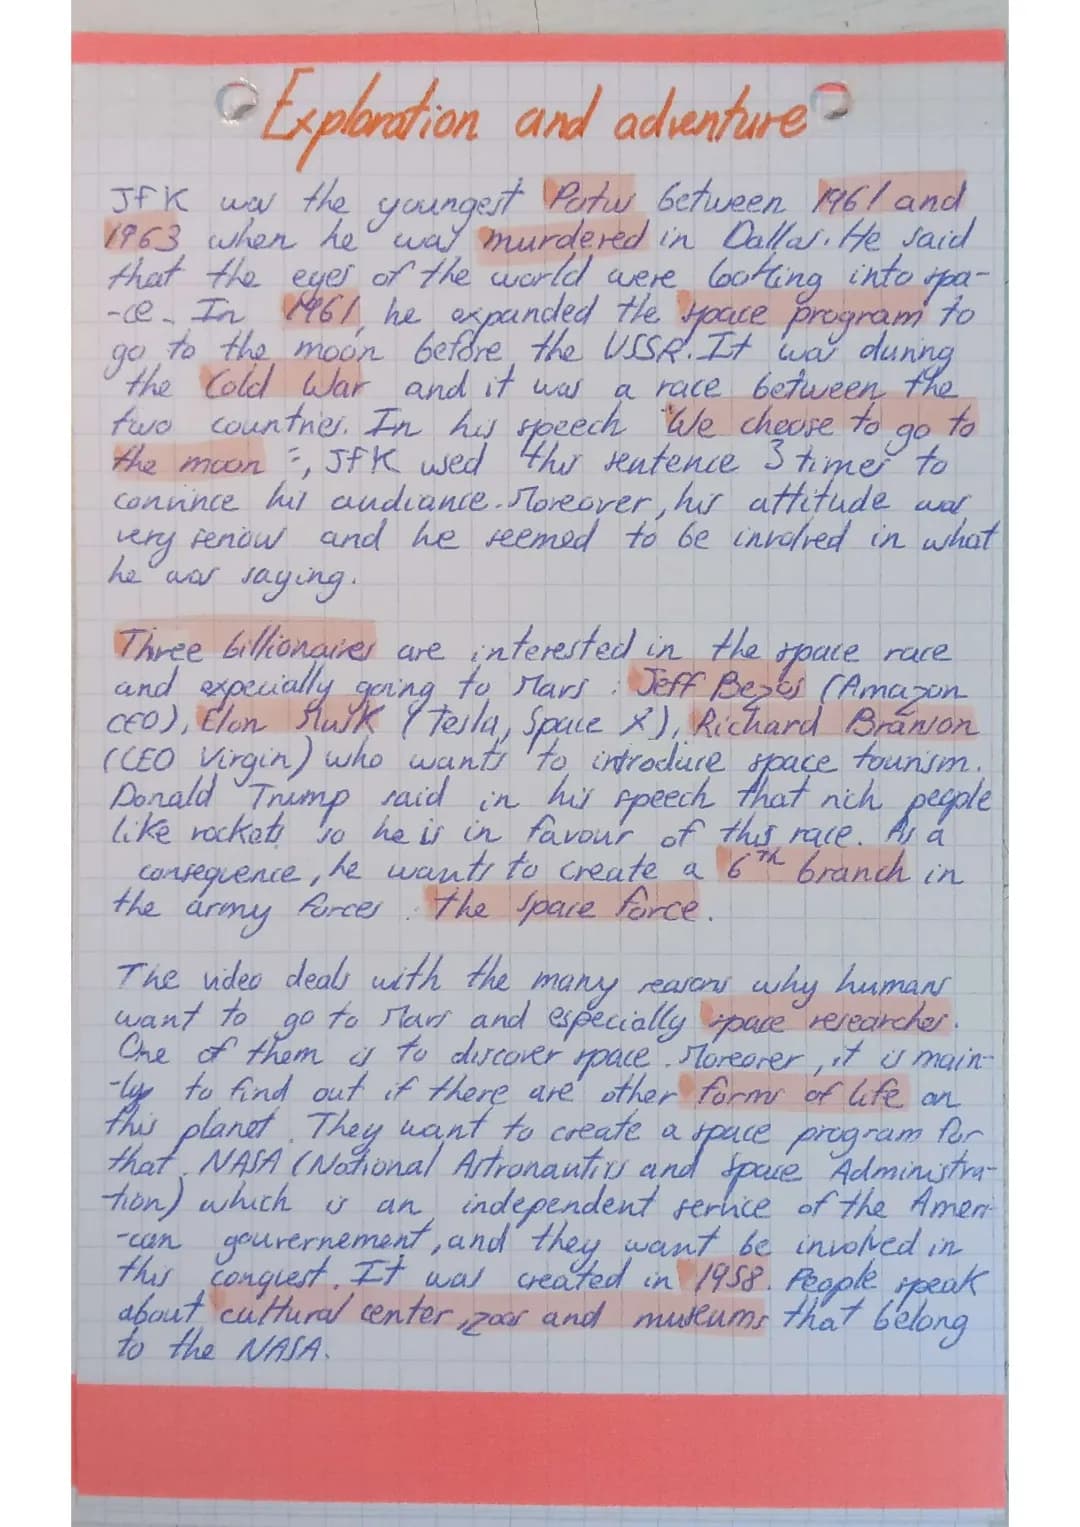 Exploration and adventure
JFK was the youngest Potus between 1961 and
1963 when he was murdered in Dallas. He said
that the eyes of the world were looking into spa-
-ce. In 1961, he expanded the space program to
go to the moon before the USSR. It was during
the Cold War and it was a race between the
two countries. In his speech "We choose to go to
the moon", JFK used this sentence 3 times to
convince his audiance. Moreover, his attitude was
very serious and he seemed to be involved in what
he was saying.
Three billionaires are interested in the space race
and expecially going to Mars : Jeff Bezos (Amazon
CEO), Elon Musk (Tesla, Space X), Richard Branson
(CEO Virgin) who wants to introduce space tourism.
Donald Trump said in his speech that rich people
like rockets so he is in favour of this race. As a
consequence, he wants to create a 6th branch in
the army forces : the Space Force.
The video deals with the many reasons why humans
want to go to Mars and especially space researches.
One of them is to discover space. Moreover, it is main-
-ly to find out if there are other forms of life on
this planet. They want to create a space program for
that. NASA (National Astronautics and Space Administra-
tion) which is an independent service of the Ameri-
-can gouvernement, and they want be involved in
this conquest. It was created in 1958. People speak
about cultural center, zoos and museums that belong
to the NASA.